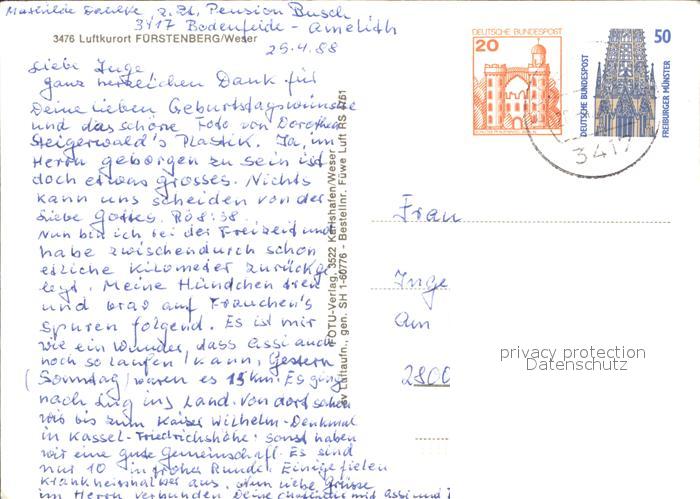 z. Zt. Pension Busch
3417 Bodenfelde - Amelith
3476 Luftkurort FÜRSTENBERG/Weser
25.4.88
Liebe Inge
ganz herzlichen Dank für
Deine lieben Geburtstagswünsche
und das schöne Foto von Dorothea
Steigerwald's Plastik. Ja, im
Herrn geborgen zu sein ist
doch etwas Grosses. Nichts
kann uns scheiden von der
Liebe Gottes. Rö 8:38.
Nun bin ich bei der Freizeit und
habe zwischendurch schon
etliche Kilometer zurückge
legt. Meine Hündchen treu
und brav auf Frauchen's
Spuren folgend. Es ist mir
wie ein Wunder, dass Assi auch
noch so laufen kann, Gestern
(Sonntag) waren es 15 km. Es ging
nach Lug ins Land. Von dort sahen
wir bis zum Kaiser Wilhelm-Denkmal
in Kassel-Friedrichshöhe. Sonst haben
wir eine gute Gemeinschaft. Es sind
nur 10 in froher Runde. Einige fielen
krankheitshalber aus. Nun liebe Grüsse
im Herrn verbunden Deine mit Assi und
FOTU-Verlag, 3522 Karlshafen/Weser
Luftaufn., gen. SH 1-60776 - Bestellnr. Füwe Luft RS 4761
DEUTSCHE BUNDESPOST
20
DEUTSCHE BUNDESPOST
50
FREIBURGER MÜNSTER
3417
Frau
Inge
Am
2800
privacy protection
Datenschutz